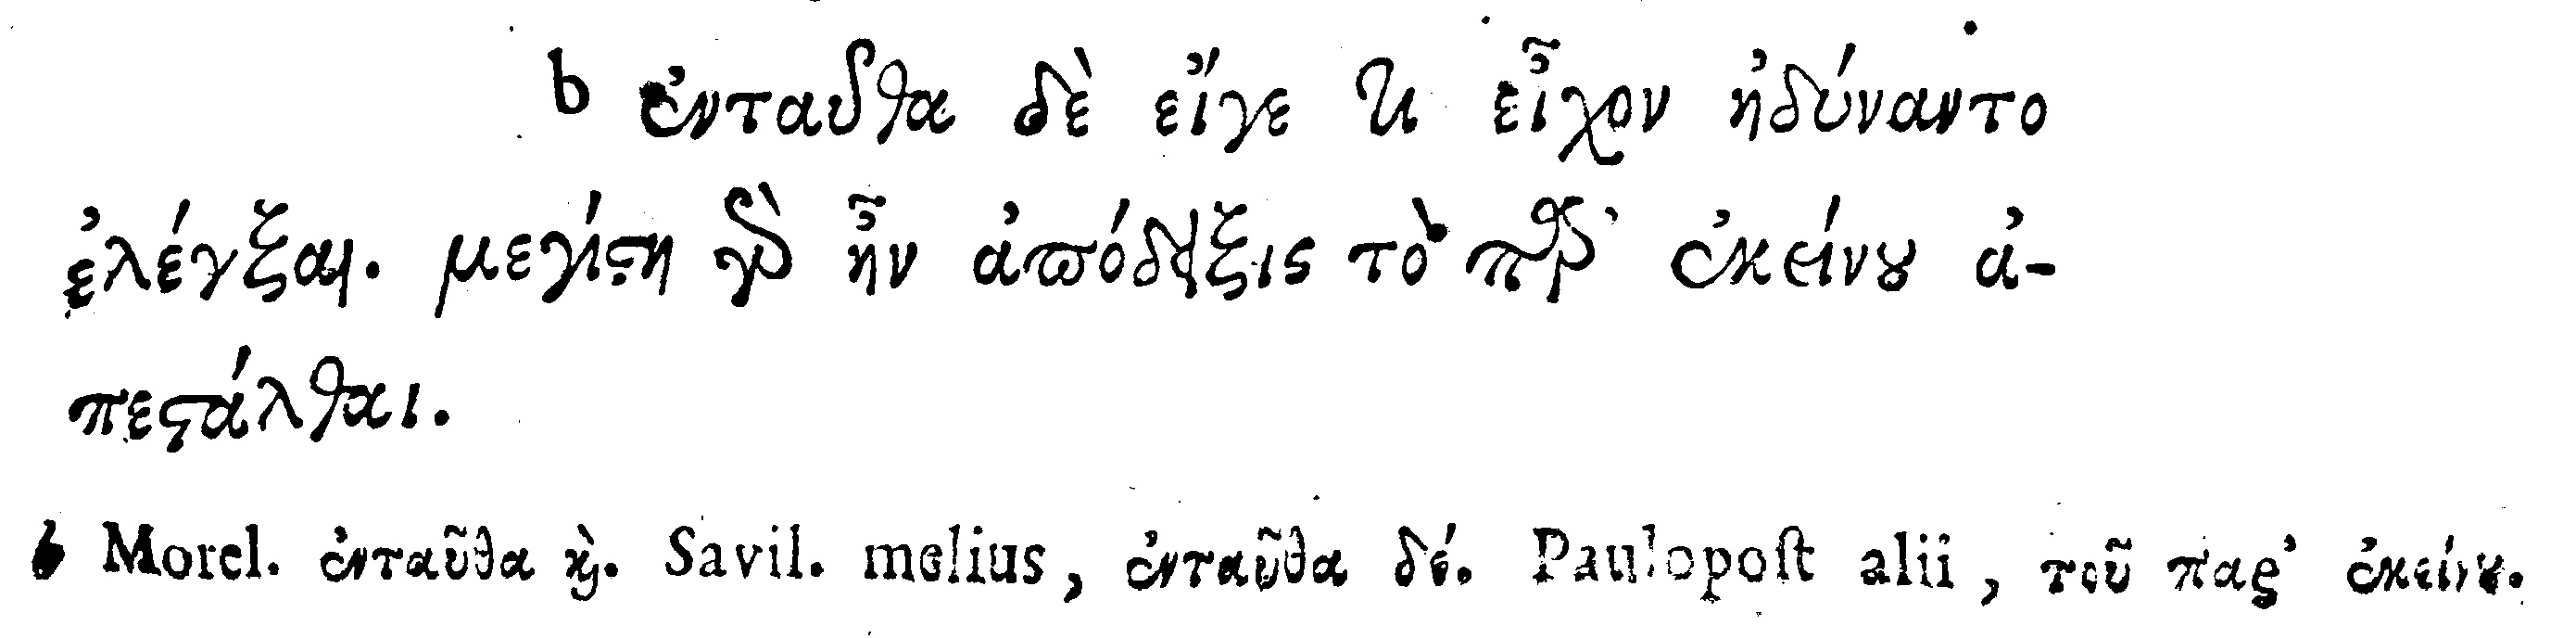 b ἐνταῦθα δὲ εἴγε τι εἶχον ἠδύναντο
ἐλέγξαι. μεγίστη γὰρ ἦν ἀπόδειξις τὸ παρ’ ἐκείνου ἀ-
πεστάλθαι.
b Morel. ἐνταῦθα καὶ. Savil. melius, ἐνταῦθα δέ. Paulopoſt alii, τοῦ παρ’ ἐκείνου.